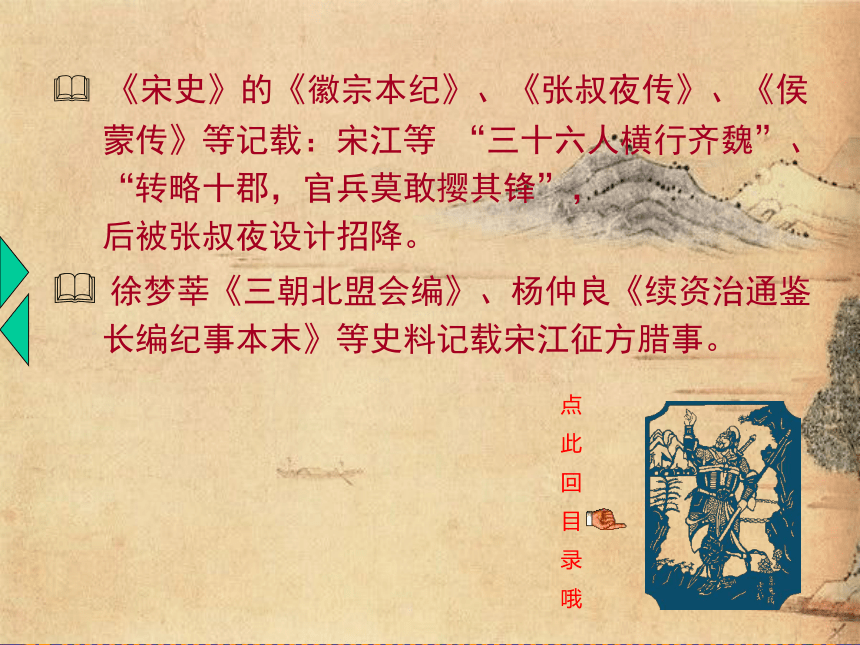 《宋史》的《徽宗本纪》、《张叔夜传》、《侯
蒙传》等记载：宋江等 “三十六人横行齐魏”、
“转略十郡，官兵莫敢撄其锋”，
后被张叔夜设计招降。
徐梦莘《三朝北盟会编》、杨仲良《续资治通鉴
长编纪事本末》等史料记载宋江征方腊事。
点
此
回
目
录
哦